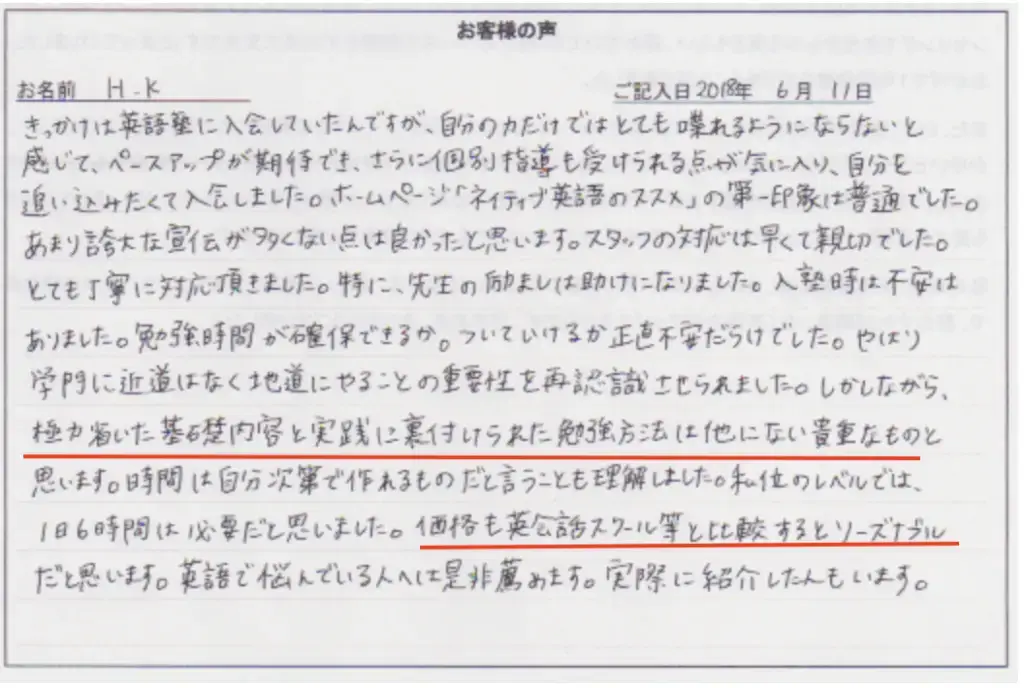 お客様の声
お名前 H.K ご記入日2018年 6月 11日
きっかけは英語塾に入会していたんですが、自分の力だけではとても喋れるようにならないと
感じて、ペースアップが期待でき、さらに個別指導も受けられる点が気に入り、自分を
追い込みたくて入会しました。ホームページ「ネイティブ英語のススメ」の第一印象は普通でした。
あまり誇大な宣伝が多くない点は良かったと思います。スタッフの対応は早くて親切でした。
とても丁寧に対応頂きました。特に、先生の励ましは助けになりました。入塾時は不安は
ありました。勉強時間が確保できるか。ついていけるか正直不安だらけでした。やはり
学門に近道はなく地道にやることの重要性を再認識させられました。しかしながら、
極力省いた基礎内容と実践に裏付けられた勉強方法は他にない貴重なものと
思います。時間は自分次第で作れるものだと言うことも理解しました。私位のレベルでは、
1日6時間は必要だと思いました。価格も英会話スクール等と比較するとリーズナブル
だと思います。英語で悩んでいる人へは是非薦めます。実際に紹介したんもいます。